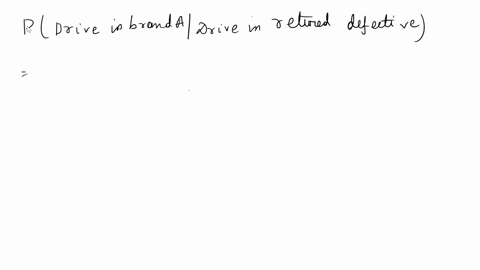 P(Drive is brand A/Drive in retured defective)
=